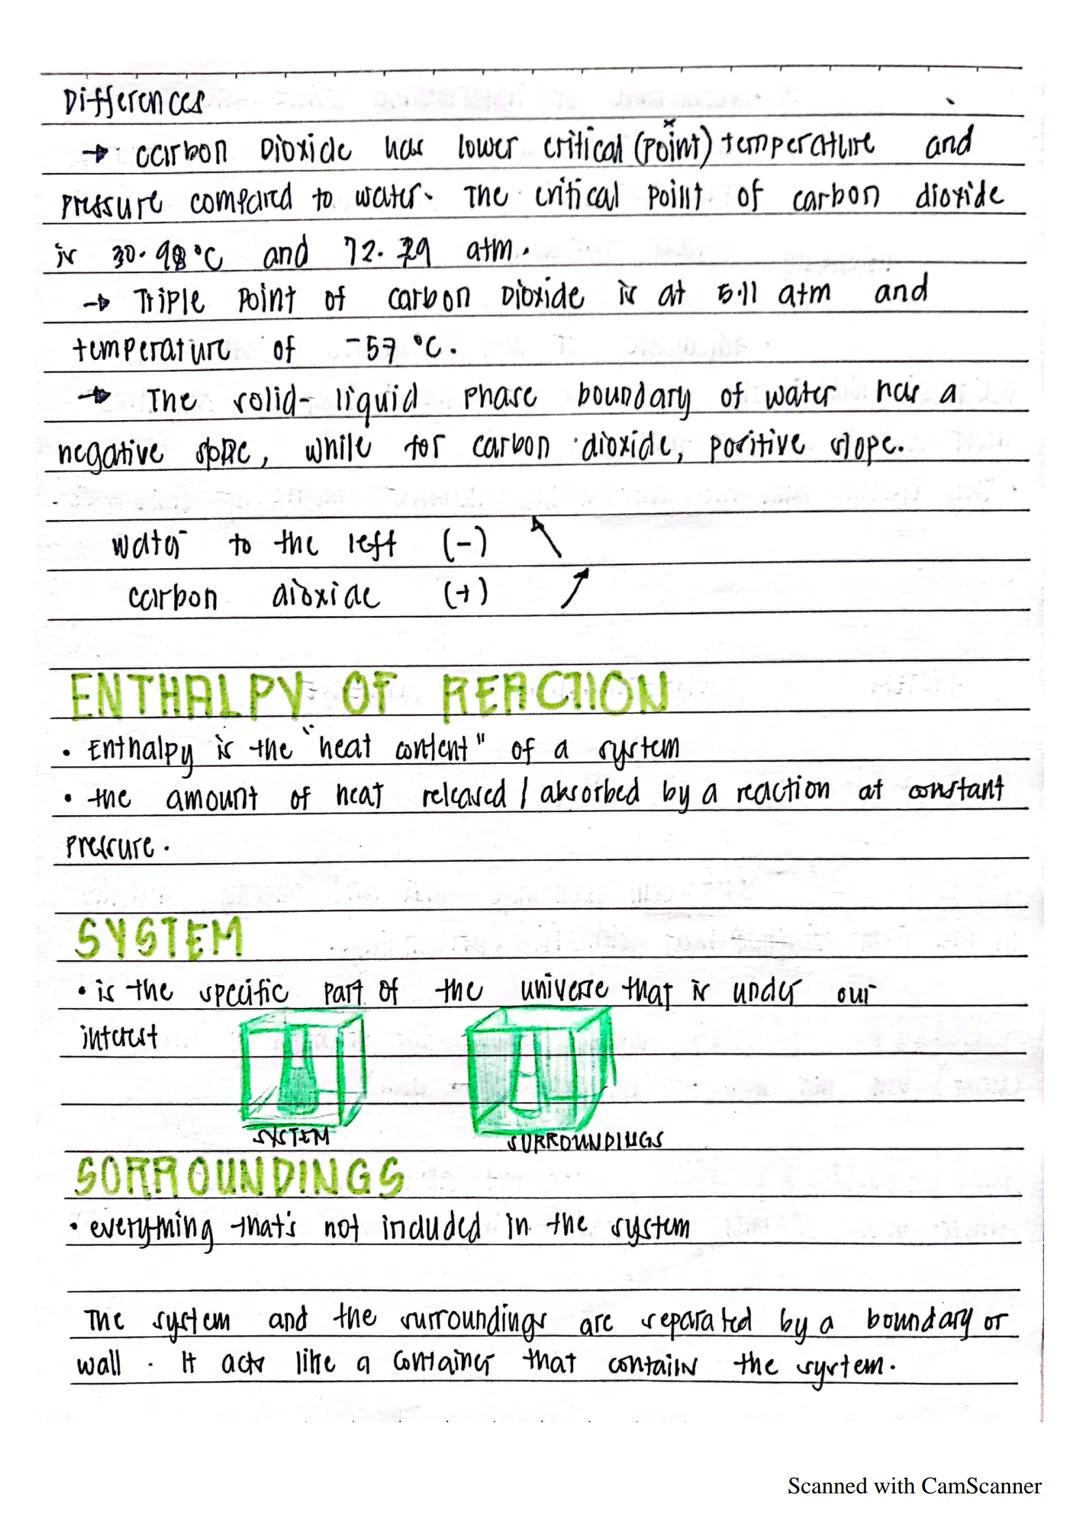 Differences
→ carbon Dioxide has lower critical (point) temperature and
pressure compared to water. The critical point of carbon dioxide
is 30.98 °C and 72.79 atm.
→ Triple Point of carbon Dioxide is at 5.11 atm and
temperature of -57 °C.
→ The solid-liquid phase boundary of water has a
negative slope, while for carbon dioxide, positive slope.
water to the left (-)
carbon dioxide (+)
ENTHALPY OF REACTION
• Enthalpy is the "heat content" of a system
• the amount of heat released / absorbed by a reaction at constant
pressure.
SYSTEM
• is the specific part of the universe that is under our
interest
SYSTEM SURROUNDINGS
SORROUNDINGS
• everything that's not included in the system
The system and the surroundings are separated by a boundary or
wall. It acts like a container that contains the system.
Scanned with CamScanner